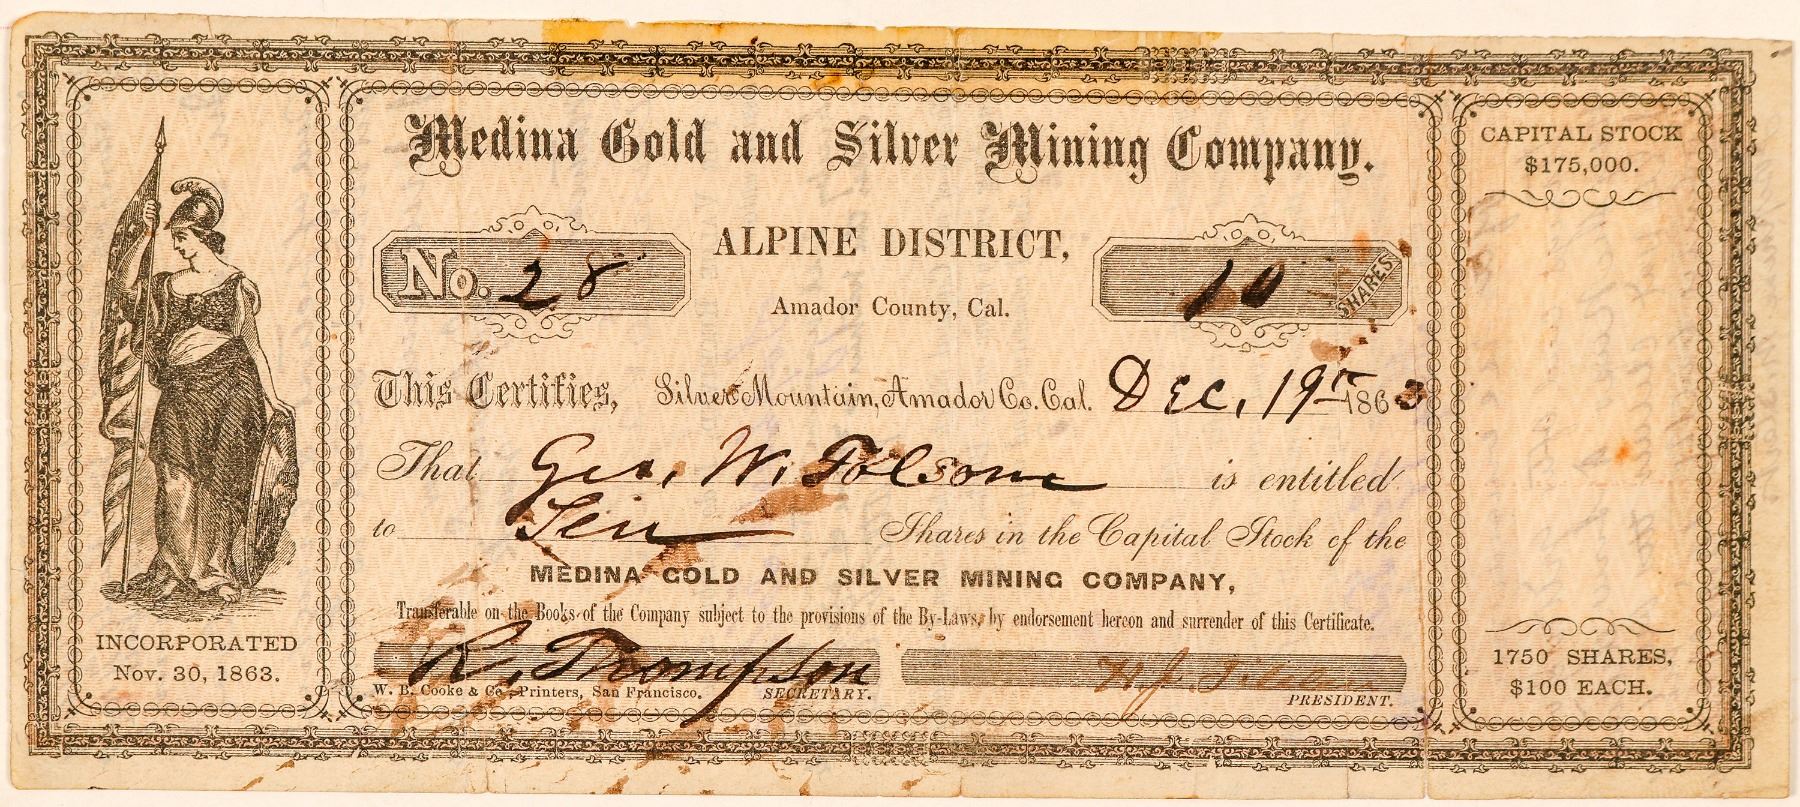 Medina Gold and Silver Mining Company.
CAPITAL STOCK
$175,000.
ALPINE DISTRICT,
No. 28
10 SHARES
Amador County, Cal.
This Certifies, Silver Mountain, Amador Co. Cal. Dec. 19th 1863
That Geo. W. Folsom is entitled
to Ten Shares in the Capital Stock of the
MEDINA GOLD AND SILVER MINING COMPANY,
Transferable on the Books of the Company subject to the provisions of the By-Laws, by endorsement hereon and surrender of this Certificate.
INCORPORATED
Nov. 30, 1863.
R. Thompson
H. J.
W. B. Cooke & Co. Printers, San Francisco.
SECRETARY.
PRESIDENT.
1750 SHARES,
$100 EACH.